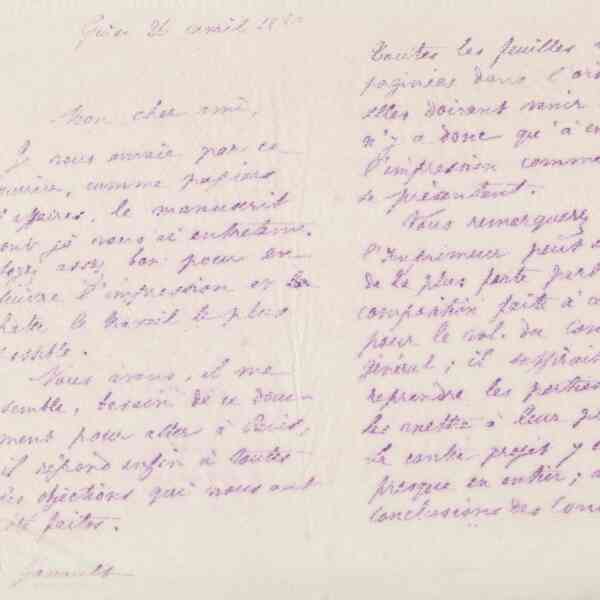 21 avril
Mon cher ami,
Je vous envoie par ce
courrier, comme papiers
d'affaires, le manuscrit
dont je vous ai entretenu.
Soyez assez bon pour en
l'impression et
hâter le travail le plus
possible.
Nous avons, il me
semble, besoin de ce docu-
ment pour aller à Paris,
il répond enfin à toutes
les objections qui nous ont
été faites.
Toutes les feuilles
paginées dans l'or
elles doivent venir
n'y a donc qu'à en
l'impression comme
se présentent.
Vous remarquerez
l'Imprimeur peut
de la plus forte part
composition faite à
pour le vol. du Con
général; il suffirait
reprendre les portion
les mettre à leur
Le contre projet y
presque en entier;
conclusions des